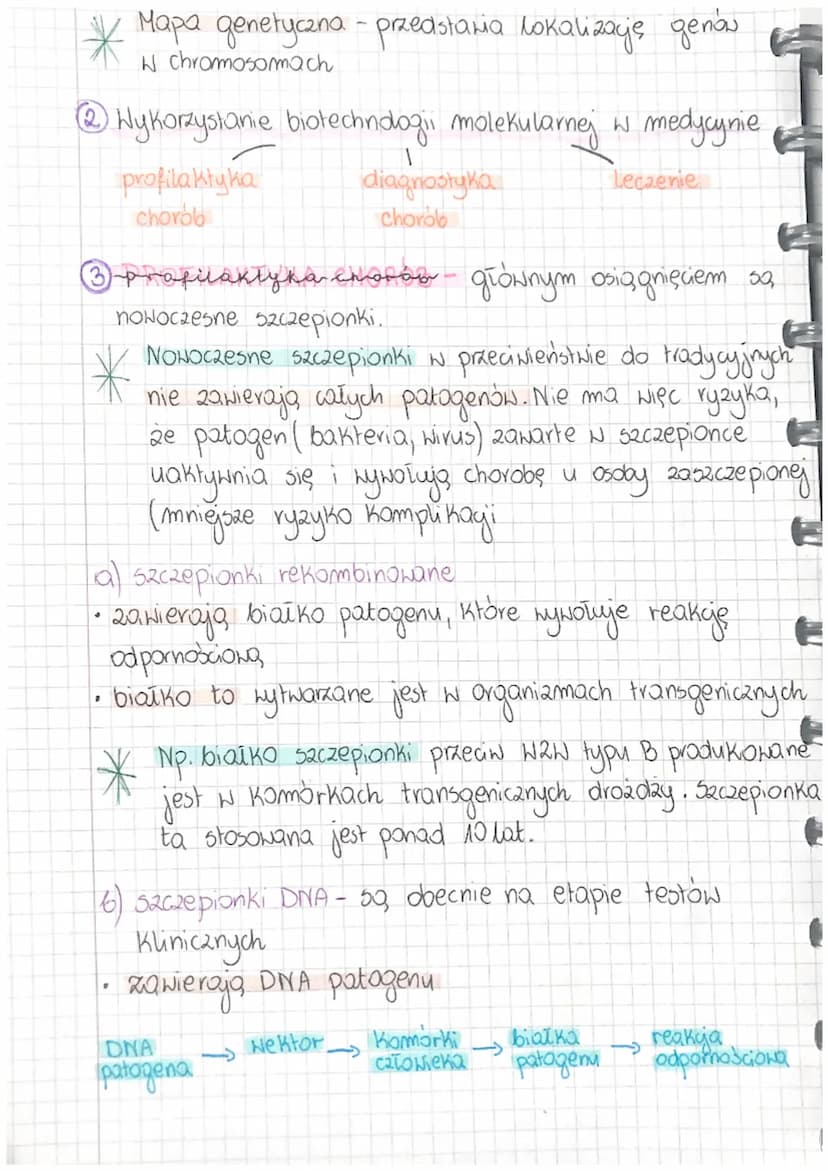 Mapa genetyczna - przedstawia lokalizację genów
w chromosomach
② Wykorzystanie biotechnologii molekularnej w medycynie
profilaktyka chorób
diagnostyka chorób
leczenie
③ PROFILAKTYKA CHORÓB - głównym osiągnięciem są
nowoczesne szczepionki.
Nowoczesne szczepionki w przeciwieństwie do tradycyjnych
nie zawierają całych patogenów. Nie ma więc ryzyka,
że patogen (bakteria, wirus) zawarte w szczepionce
uaktywnia się i wywołują chorobę u osoby zaszczepionej
(mniejsze ryzyko komplikacji
a) szczepionki rekombinowane
• zawierają białko patogenu, które wywołuje reakcję
odpornościową
• białko to wytwarzane jest w organizmach transgenicznych
Np. białko szczepionki przeciw WZW typu B produkowane
jest w komórkach transgenicznych drożdży. Szczepionka
ta stosowana jest ponad 10 lat.
b) szczepionki DNA - są obecnie na etapie testów
klinicznych
• zawierają DNA patogenu
DNA patogena → wektor → komórki człowieka → białka patogenu → reakcja odpornościowa